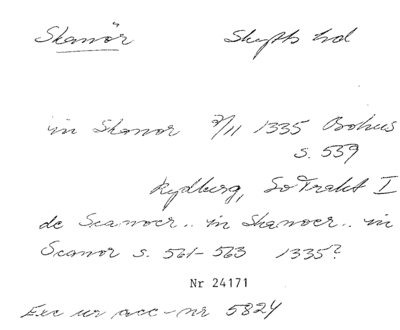 Skanör Skytts hd
in Skanor 3/11 1335 Bohus
s. 539
Rydberg, SvTrakt I
de Scanoer.. in Skanoer.. in
Scanor s. 561-563 1335?
Nr 24171
Exc ur acc-nr 5824